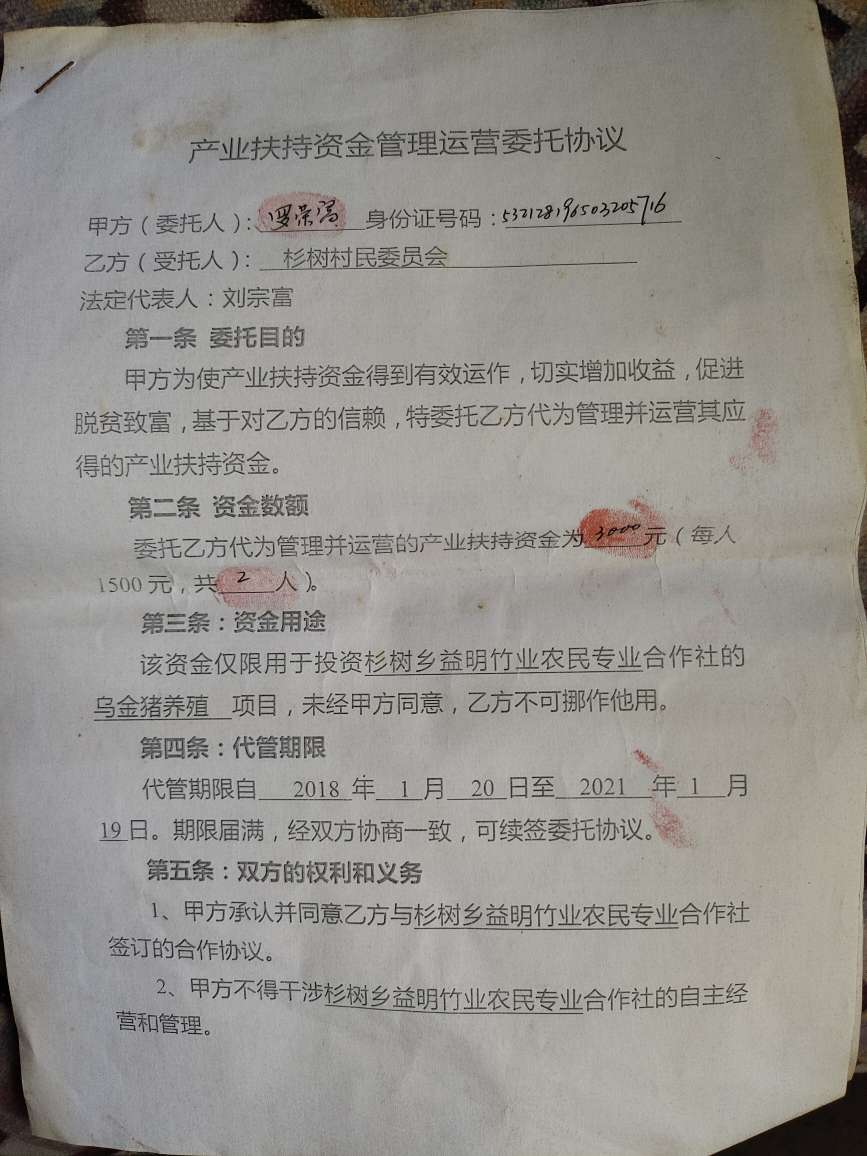 产业扶持资金管理运营委托协议
甲方（委托人）：罗荣 身份证号码：532128196503205716
乙方（受托人）： 杉树村民委员会
法定代表人：刘宗富
第一条 委托目的
甲方为使产业扶持资金得到有效运作，切实增加收益，促进
脱贫致富，基于对乙方的信赖，特委托乙方代为管理并运营其应
得的产业扶持资金。
第二条 资金数额
委托乙方代为管理并运营的产业扶持资金为3000元（每人
1500元，共2人）。
第三条：资金用途
该资金仅限用于投资杉树乡益明竹业农民专业合作社的
乌金猪养殖 项目，未经甲方同意，乙方不可挪作他用。
第四条：代管期限
代管期限自 2018 年 1 月 20 日至 2021 年 1 月
19日。期限届满，经双方协商一致，可续签委托协议。
第五条：双方的权利和义务
1、甲方承认并同意乙方与杉树乡益明竹业农民专业合作社
签订的合作协议。
2、甲方不得干涉杉树乡益明竹业农民专业合作社的自主经
营和管理。